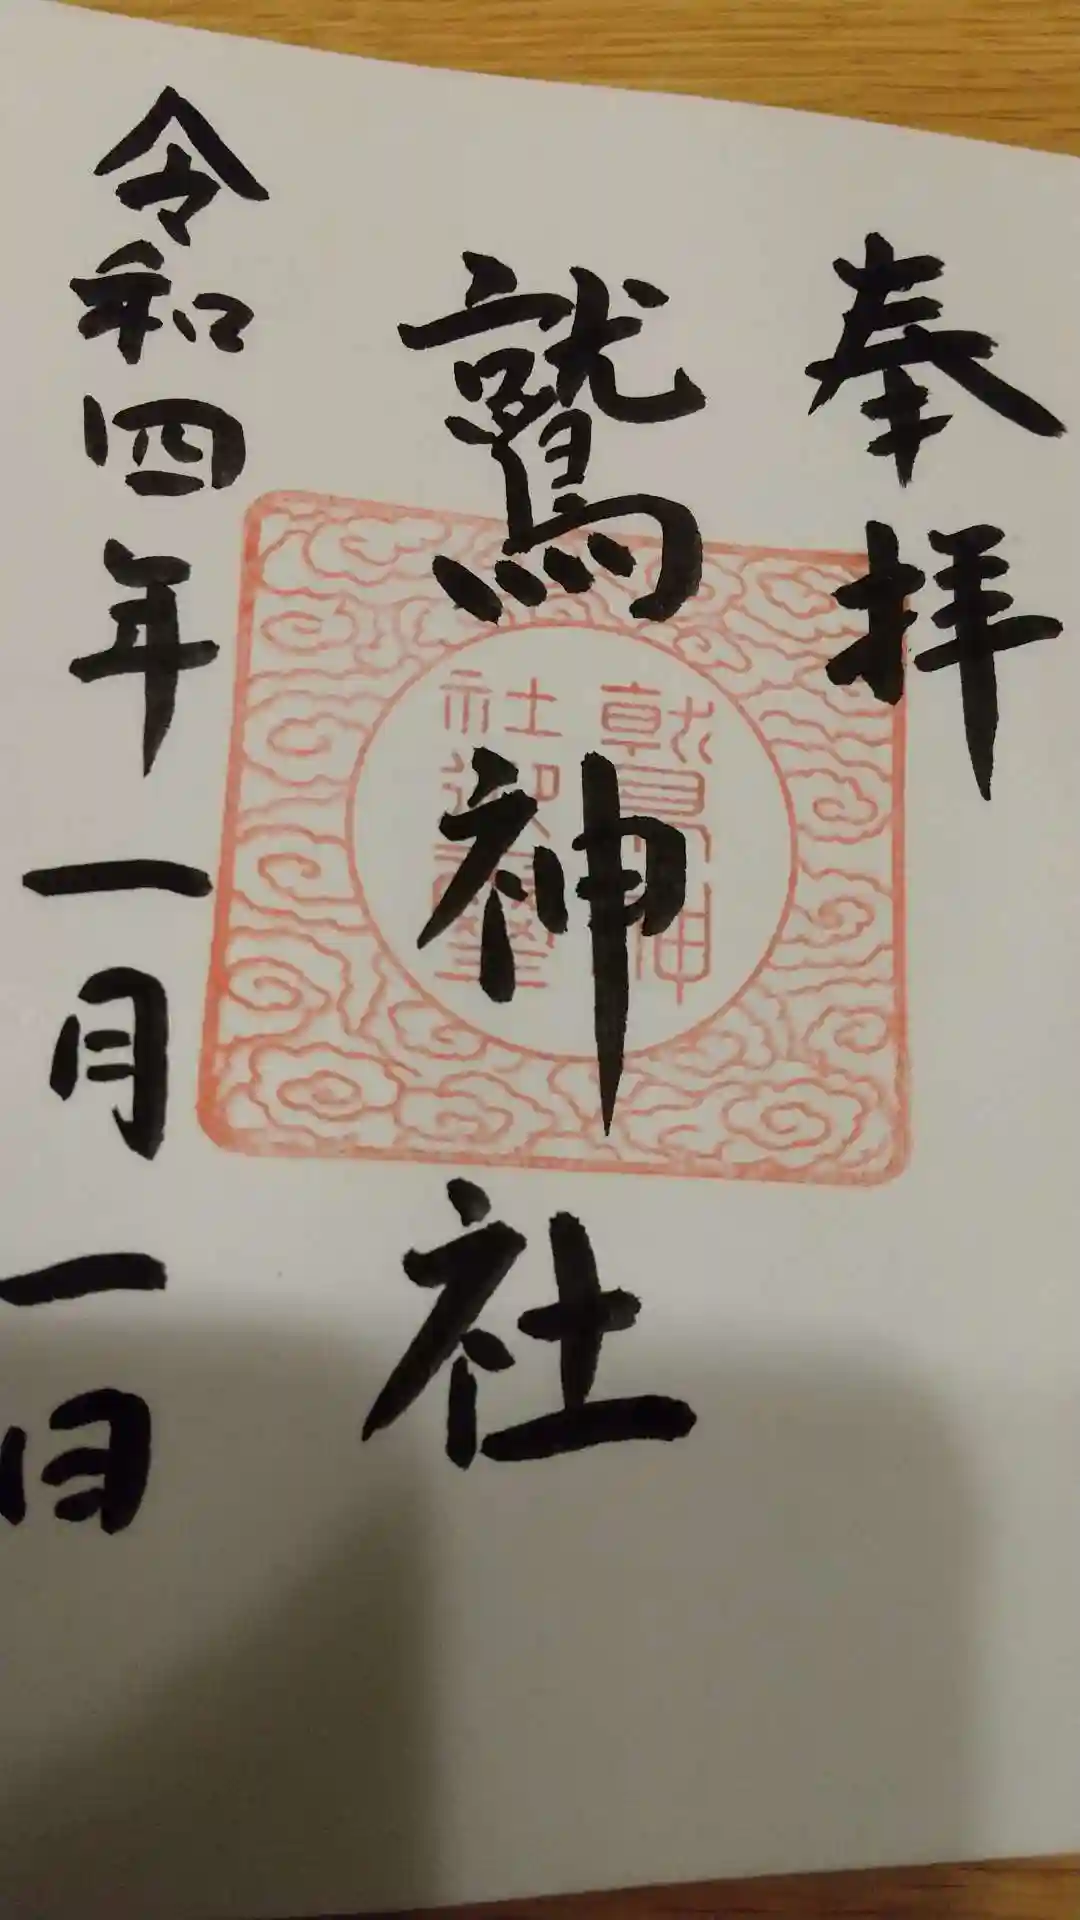 奉拝
鷲神社
令和四年一月一日
鷲神
社御璽